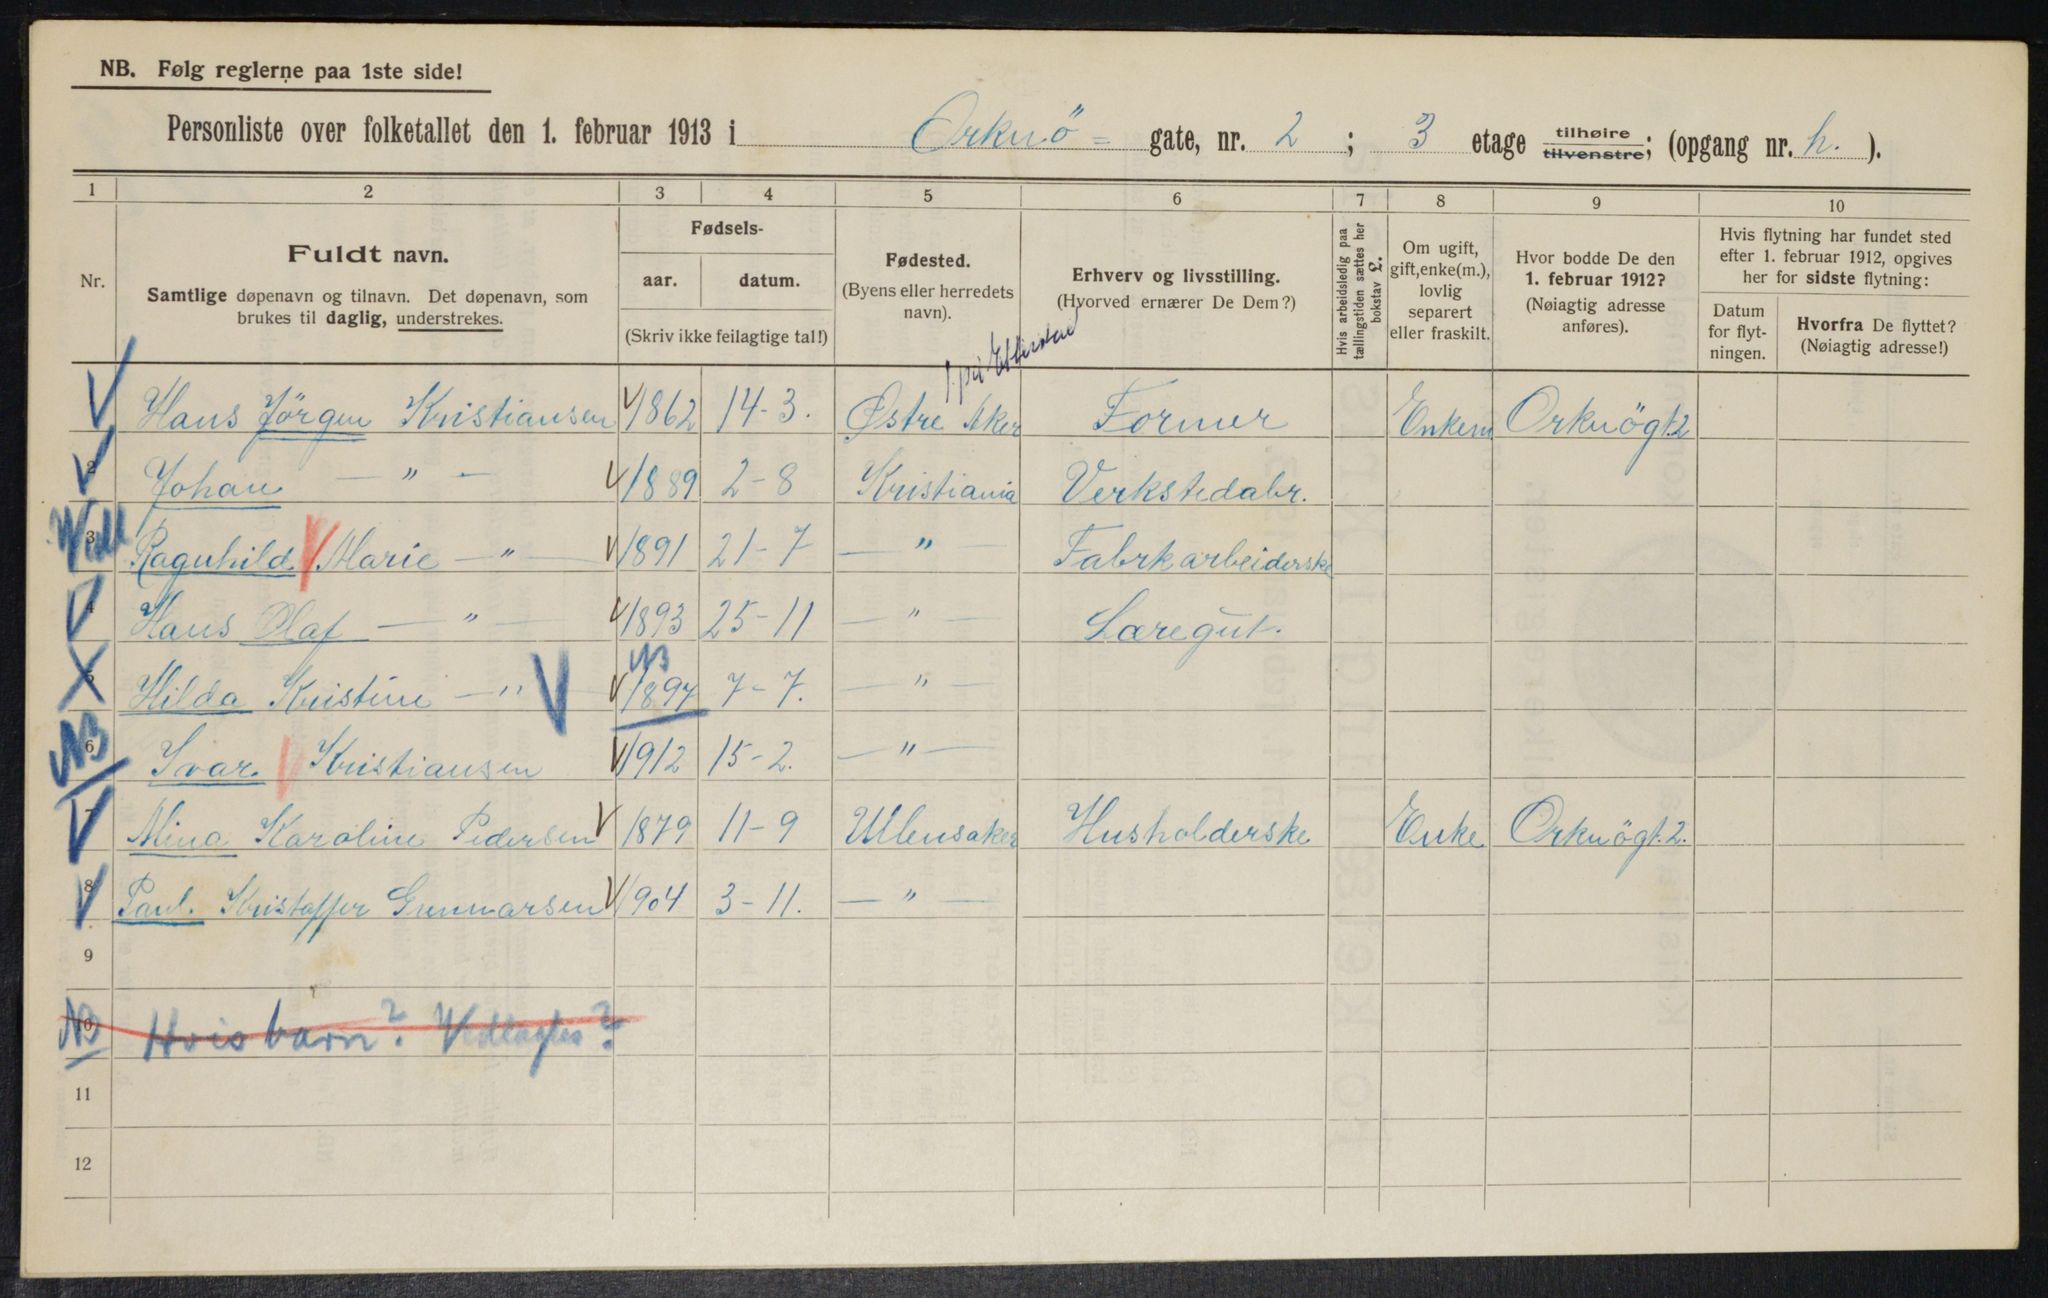 NB. Følg reglerne paa 1ste side!
Personliste over folketallet den 1. februar 1913 i Orknö = gate, nr. 2 ; 3 etage tilhøire tilvenstre; (opgang nr. h. ).
1 2 3 4 5 6 7 8 9 10
Nr.
Fuldt navn.
Samtlige døpenavn og tilnavn. Det døpenavn, som
brukes til daglig, understrekes.
Fødsels-
aar. datum.
(Skriv ikke feilagtige tal!)
Fødested.
(Byens eller herredets
navn).
Erhverv og livsstilling.
(Hvorved ernærer De Dem?)
Hvis arbeidsledig paa
tællingstiden sættes her
bokstav L.
Om ugift,
gift, enke(m.),
lovlig
separert
eller fraskilt.
Hvor bodde De den
1. februar 1912?
(Nøiagtig adresse
anføres).
Hvis flytning har fundet sted
efter 1. februar 1912, opgives
her for sidste flytning:
Datum
for flyt-
ningen.
Hvorfra De flyttet?
(Nøiagtig adresse!)
Hans Jörgen Kristiansen 1862 14-3. Østre Aker Former Enkem Orknögt. 2
2 Johan — " — 1889 2-8 Kristiania Verkstedabr.
3 Ragnhild Marie — " — 1891 21-7 — " — Fabrkarbeiderske
4 Hans Olaf — " — 1893 25-11 — " — Læregut.
NB
5 Hilda Kristine — " — 1897 7-7. — " —
NB 6 Ivar Kristiansen 1912 15-2. — " —
7 Mina Karoline Pedersen 1879 11-9 Ullensaker Husholderske Enke Orknögt. 2.
8 Paul. Kristoffer Gunnarsen 1904 3-11. — " —
9
NB 10 Hvis barn? Vedtagtes?
11
12